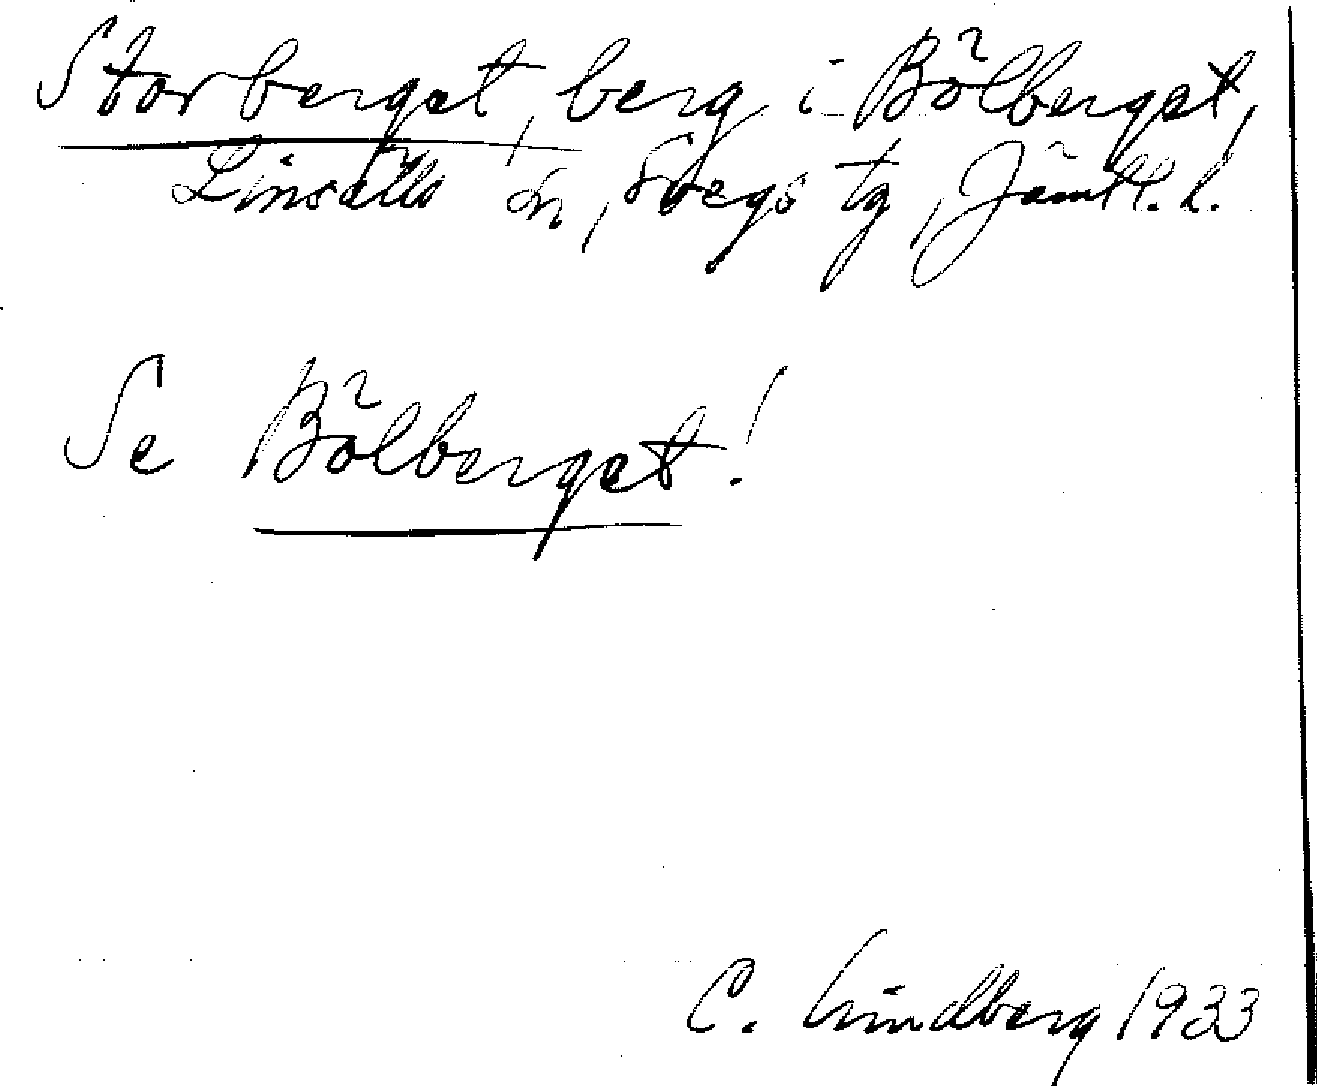 Storberget, berg i Bölberget,
Linsälls sn, Svegs tg, Jämtl. l.
Se Bölberget!
C. Lindberg 1933